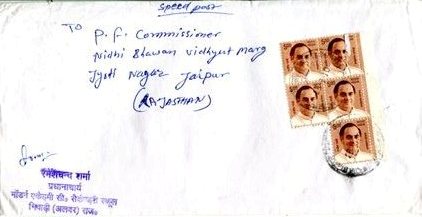 Speed post
To
P. f. Commissioner
Nidhi Bhawan Vidhyut marg
Jyoti Nagar Jaipur
(RAJASTHAN)
रमेशचन्द शर्मा
प्रधानाचार्य
मॉडर्न एकेडमी सी० सैकण्ड्री स्कूल
भिवाड़ी (अलवर) राज०